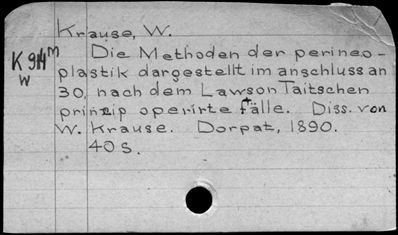 Krause, W.
K 914m
W
Die Methoden der perineo-
plastik dargestellt im anschluss an
30, nach dem Lawson Taitschen
prinzip operirte fälle. Diss. von
W. Krause. Dorpat, 1890.
40 S.